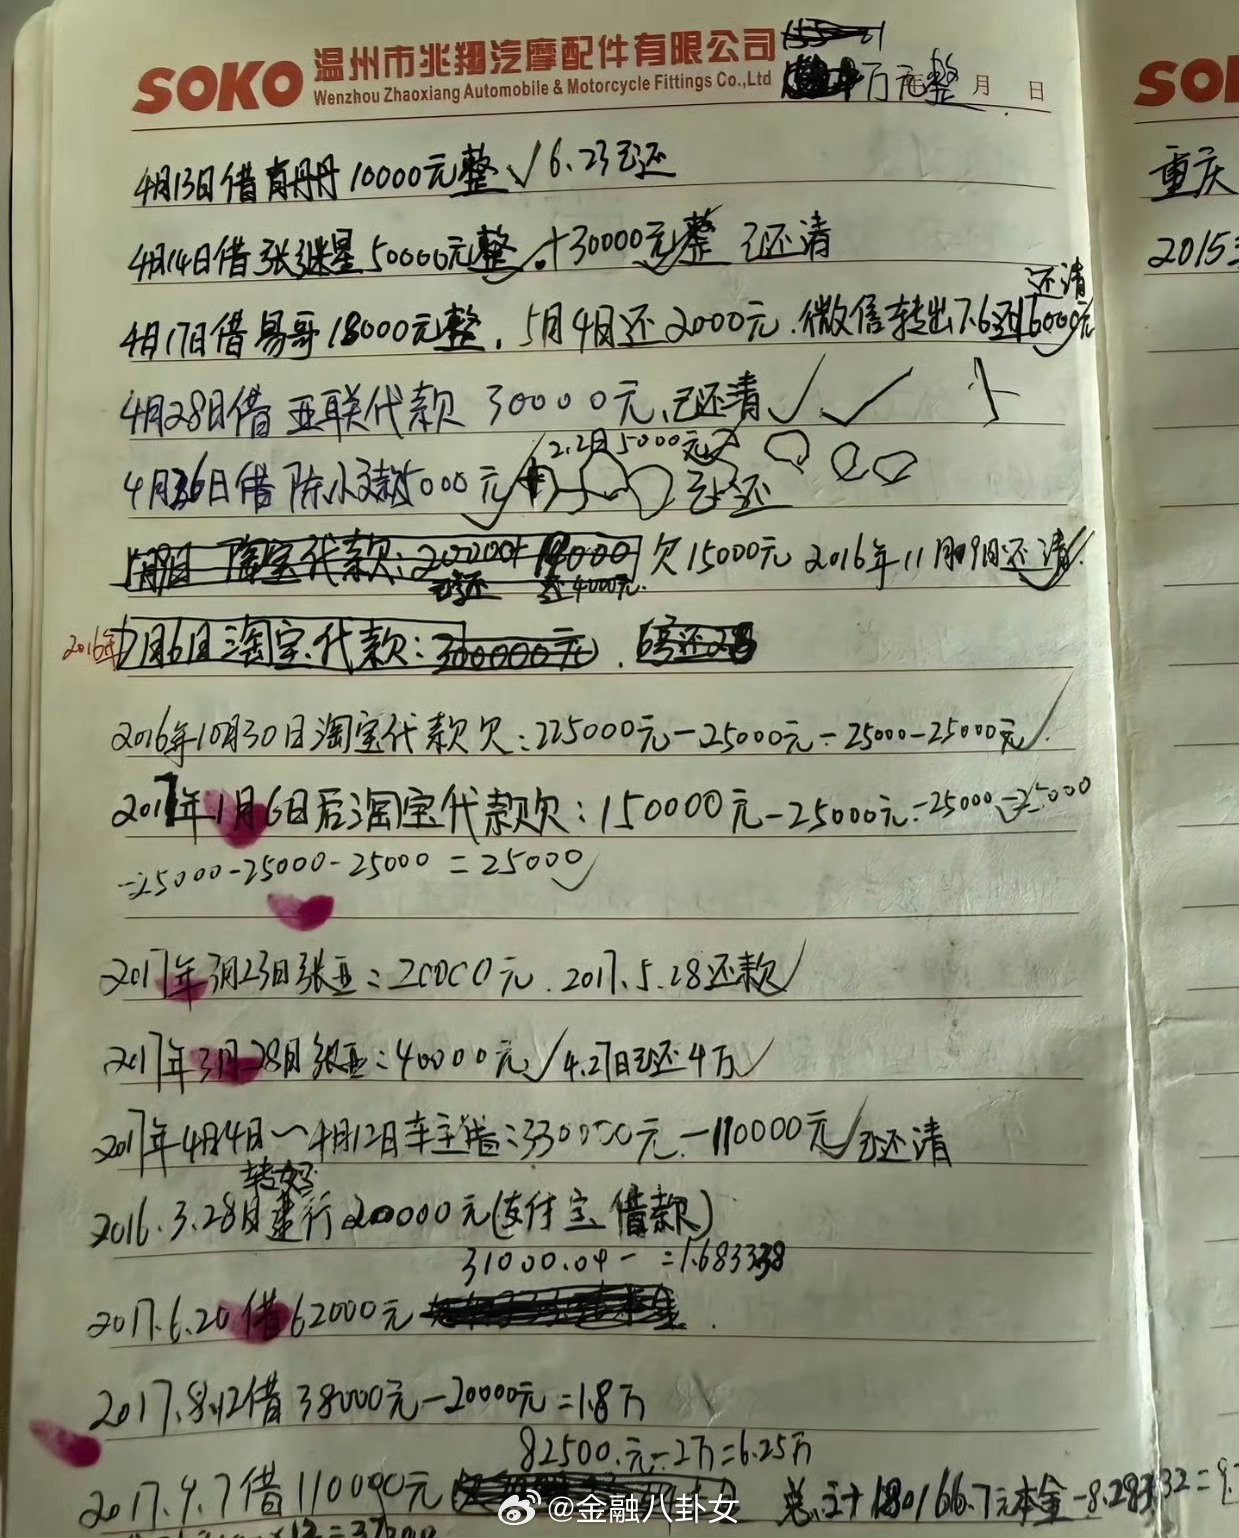 SOKO 温州市兆翔汽摩配件有限公司
Wenzhou Zhaoxiang Automobile & Motorcycle Fittings Co.,Ltd
万元整 月 日
4月13日借肖丹丹10000元整√6.23已还
4月14日借张继星50000元整+30000元整 已还清
还清
4月17日借易哥18000元整,5月4日还2000元.微信转出7.6还16000元
4月28日借亚联代款30000元,已还清√√
2.2日5000元
4月26日借陈小文款5000元 已还
5月9日 淘宝代款:200000+19000 欠15000元 2016年11月09日还清
已还 还4000元
2016年7月6日淘宝代款:300000元.
2016年10月30日淘宝代款欠:225000元-25000元-25000-25000元√
2017年1月6日后淘宝代款欠:150000元-25000元-25000-25000
-25000-25000-25000=25000√
2017年3月23日张亚:20000元.2017.5.28还款√
2017年3月28日张亚:40000元√4.27日已还4万√
2017年4月4日~4月12日车主借:330000元-110000元√已还清
转好
2016.3.28日建行20000元(支付宝借款)
31000.04- =1.683338
2017.6.20借62000元
2017.8.12借38000元-20000元=1.8万
82500.元-2万=6.25万
2017.9.7借110000元
总计180166.7元本金-8.28332=9.
SO
重庆
2015
@金融八卦女